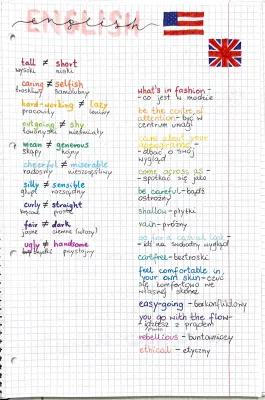 ENGLISH
english
tall ≠ short
wysoki niski
caring ≠ selfish
troskliwy samolubny
hard-working ≠ lazy
pracowity leniwy
outgoing ≠ shy
towarzyski nieśmiały
mean ≠ generous
skąpy hojny
cheerful ≠ miserable
radosny nieszczęśliwy
silly ≠ sensible
głupi rozsądny
curly ≠ straight
proste
fair ≠ dark
jasne ciemne
ugly ≠ handsome
brzydki przystojny
what's in fashion -
- co jest w modzie
be the centre of
attention - być w
centrum uwagi
care about your
appearance -
- dbać o swój
wygląd
come across as -
- spotkać się jako
be careful - bądź
ostrożny
shallow - płytki
vain - próżny
go for casual look -
- iść na swobodny wygląd
carefree - beztroski
feel comfortable in
your own skin - czuć
się komfortowo we
własnej skórze
easy-going - bezkonfliktowy
you go with the flow -
- idziesz z prądem
rebellious - buntowniczy
ethical - etyczny